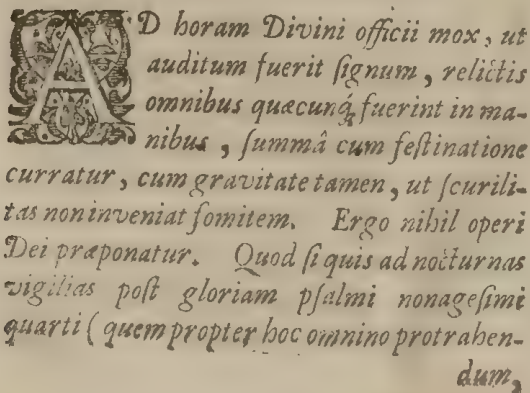 AD horam Divini officii mox, ut
auditum fuerit ſignum, relictis
omnibus quæcunq́; fuerint in ma-
nibus, ſummâ cum feſtinatione
curratur, cum gravitate tamen, ut ſcurili-
tas non inveniat fomitem. Ergo nihil operi
Dei præponatur. Quod ſi quis ad nocturnas
vigilias poſt gloriam pſalmi nonageſimi
quarti (quem propter hoc omnino protrahen-
dum,